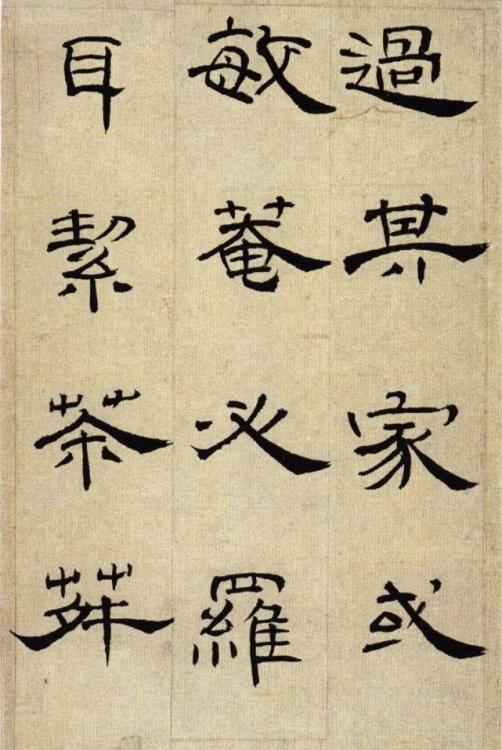 過其家或
敏菴必羅
耳絜茶荈